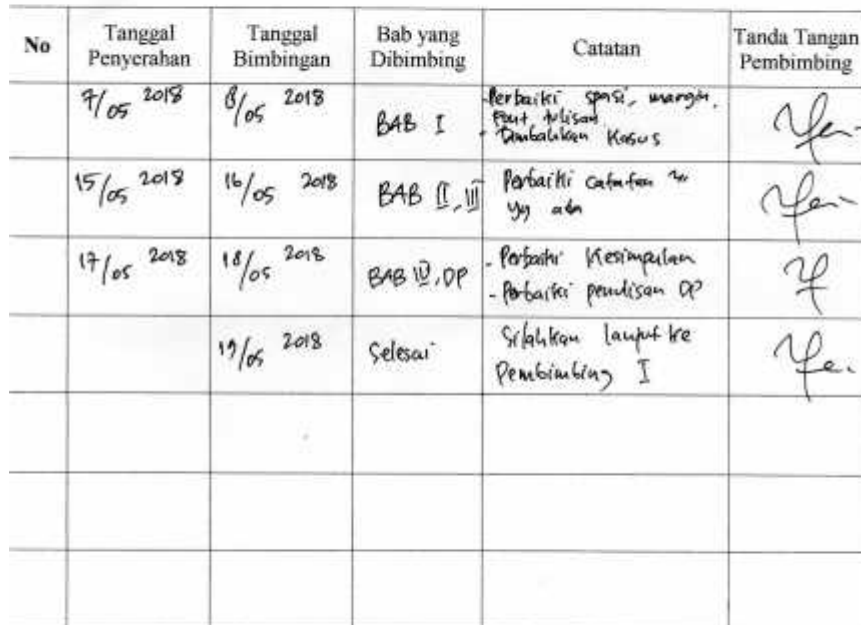 No
Tanggal Penyerahan
Tanggal Bimbingan
Bab yang Dibimbing
Catatan
Tanda Tangan Pembimbing
7/05 2018
8/05 2018
BAB I
-Perbaiki spasi, margin,
Font tulisan
- Tambahkan Kasus
15/05 2018
16/05 2018
BAB II, III
Perbaiki catatan
yg ada
17/05 2018
18/05 2018
BAB IV, DP
- Perbaiki Kesimpulan
- Perbaiki penulisan DP
19/05 2018
Selesai
Silahkan lanjut ke
Pembimbing I